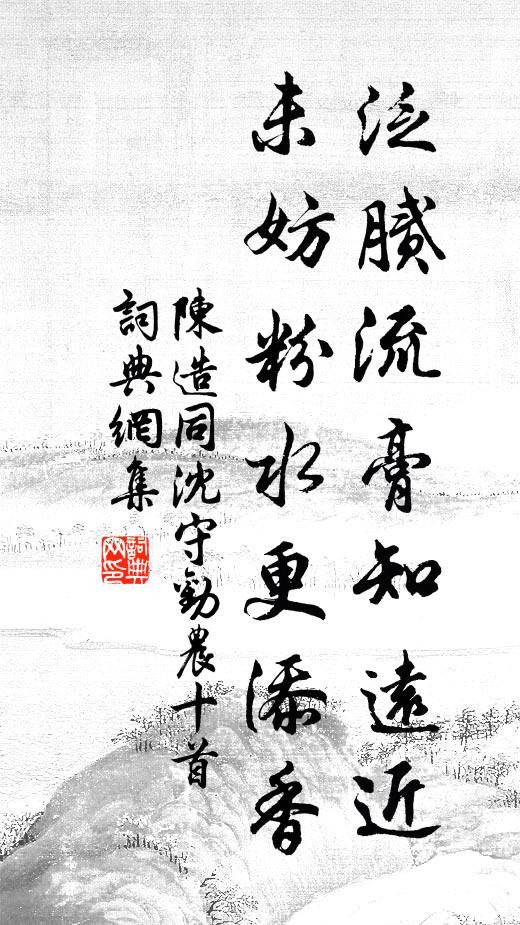 泛膩流膏知遠近
未妨粉水更添香
陳造同沈守勸農十首
詞典網集
詞典網印